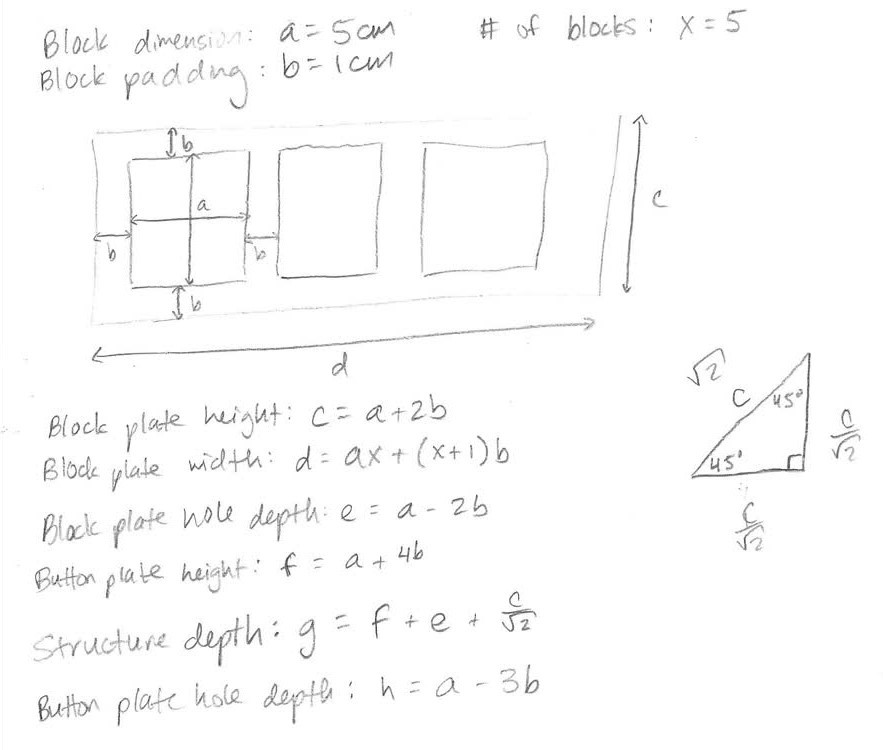 Block dimension: a = 5cm
# of blocks: x = 5
Block padding: b = 1cm
b
a
c
b
b
b
d
√2
c
45°
45°
c/√2
c/√2
Block plate height: c = a + 2b
Block plate width: d = ax + (x+1)b
Block plate hole depth: e = a - 2b
Button plate height: f = a + 4b
Structure depth: g = f + e + c/√2
Button plate hole depth: h = a - 3b